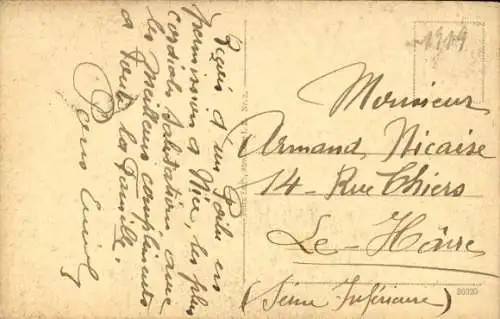 Reçois d'un Poilu en
permission à Nice, les plus
cordiales salutations, avec
les meilleurs compliments
à toute la famille.
1919
Monsieur
Armand Nicaise
14 - Rue Thiers
Le - Hâvre
(Seine Inférieure)